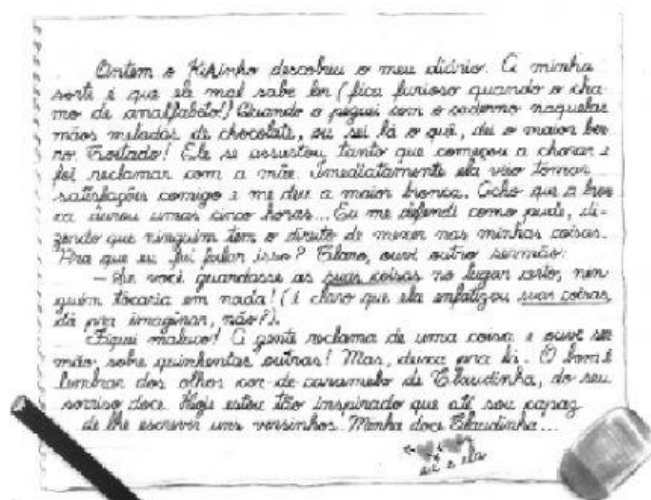 Ontem o Kikinho descobriu o meu diário. A minha
sorte é que ele mal sabe ler (fica furioso quando o cha-
mo de analfabeto!) Quando o peguei com o caderno naquelas
mãos meladas de chocolate, ou sei lá o quê, dei o maior ber-
ro. Coitado! Ele se assustou tanto que começou a chorar e
foi reclamar com a mãe. Imediatamente ela veio tomar
satisfações comigo e me deu a maior bronca. Acho que a bron-
ca durou umas cinco horas... Eu me defendi como pude, di-
zendo que ninguém tem o direito de mexer nas minhas coisas.
Pra que eu fui falar isso? Claro, ouvi outro sermão:
— Se você guardasse as suas coisas no lugar certo, nin-
guém tocaria em nada! (É claro que ela enfatizou suas coisas,
dá pra imaginar, não?).
Fiquei maluco! A gente reclama de uma coisa e ouve ser-
mão sobre quinhentas outras! Mas, deixa pra lá. O bom é
lembrar dos olhos cor-de-caramelo da Claudinha, do seu
sorriso doce. Hoje estou tão inspirado que até sou capaz
de lhe escrever uns versinhos. Minha doce Claudinha...
eu e ela